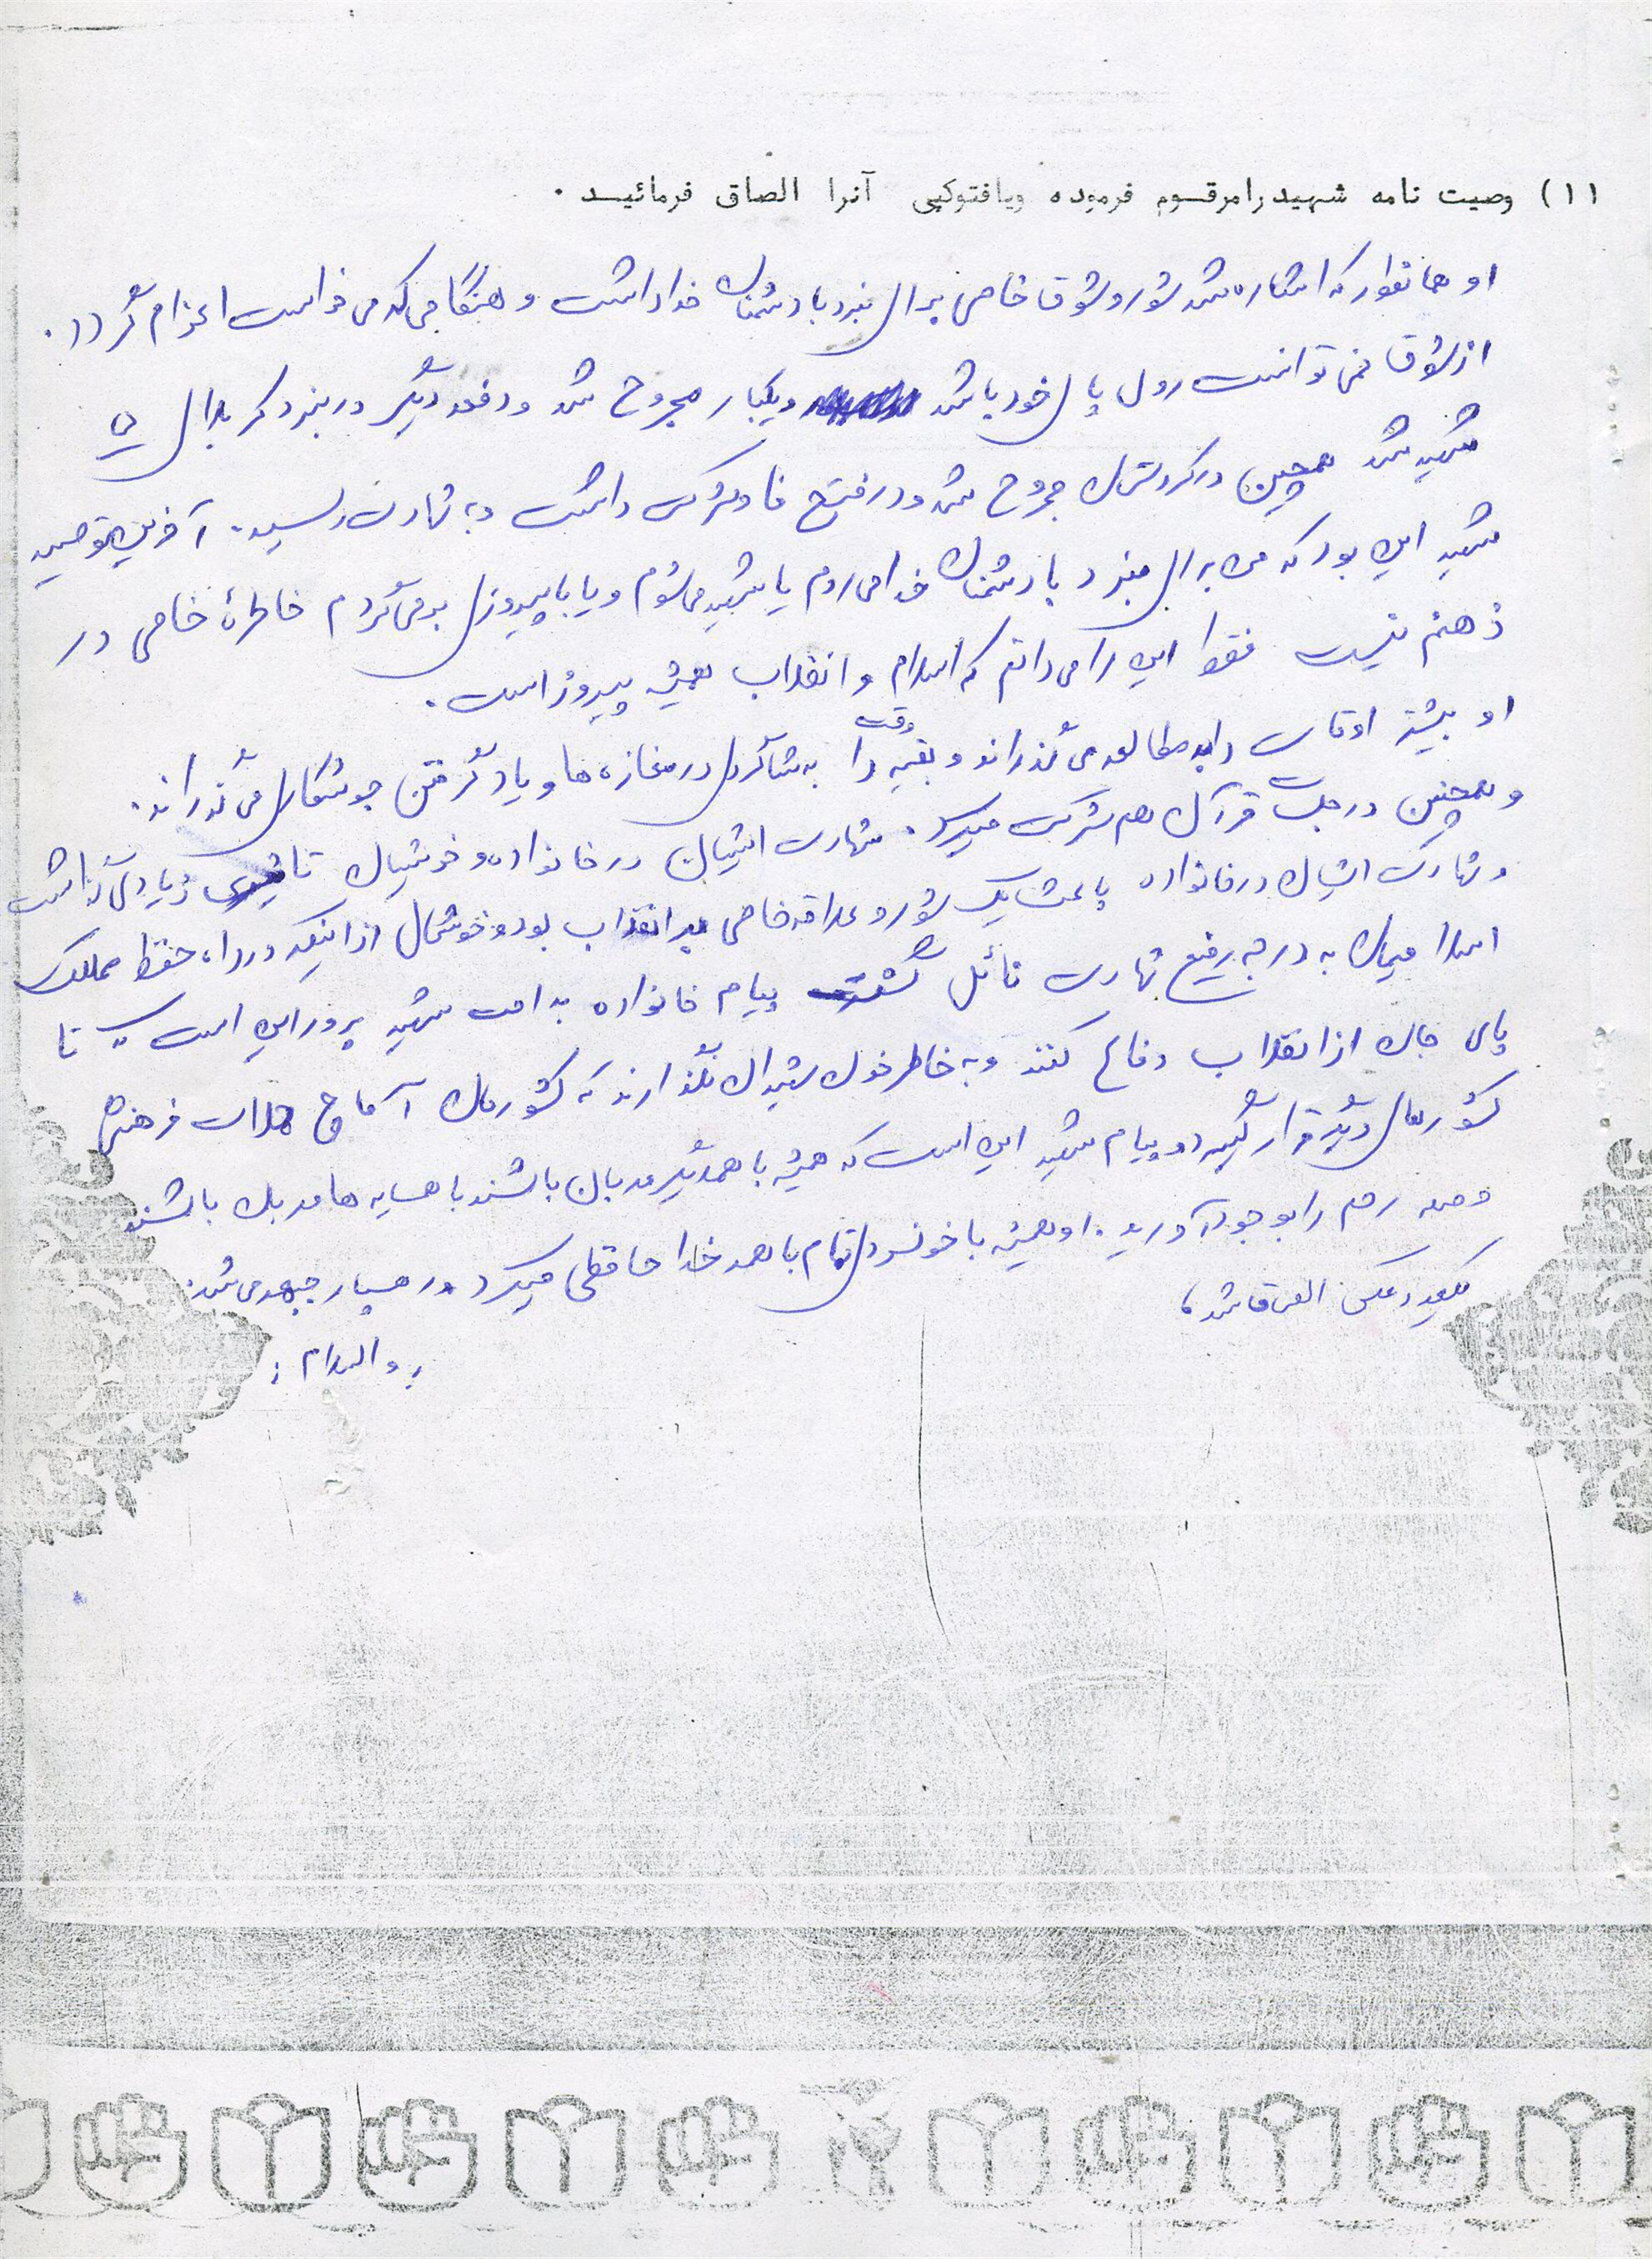 ۱۱) وصیت نامه شهید را مرقوم فرموده ویا فتوکپی آنرا الصاق فرمائید .
او همانطور که اشاره شد شور و شوق خاصی برای نبرد با دشمنان خدا داشت و هنگامی که می خواست اعزام گردد .
از شوق نمی توانست روی پای خود باشد ویکبار مجروح شد و دفعه دیگر در نبرد کربلای ۵
شهید شد همچنین در کردستان مجروح شد و در فتح فاو شرکت داشت و به شهادت رسید. آخرین توصیه
شهید این بود که من برای نبرد با دشمنان خدا می روم یا شهید می شوم و یا با پیروزی برمی گردم خاطرهٔ خاصی در
ذهنم نیست فقط این را می دانم که اسلام و انقلاب همیشه پیروز است .
او بیشتر اوقات را به مطالعه می گذراند و بقیه وقت را به شاگردی در مغازه ها و یاد گرفتن جوشکاری می گذراند .
و همچنین در جلسات قرآن هم شرکت میکرد . شهادت ایشان در خانواده و خویشان تاثیر زیادی داشت
و شهادت ایشان در خانواده باعث یک شور و علاقه خاصی به انقلاب بود و خوشحال از اینکه در راه حفظ مملکت
اسلامیمان به درجه رفیع شهادت نائل گشت پیام خانواده به امت شهید پرور این است که تا
پای جان از انقلاب دفاع کنند و به خاطر خون شهیدان نگذارند که کشورمان آماج حملات فرهنگی
کشورهای دیگر قرار گیرد و پیام شهید این است که همیشه با همدیگر مهربان باشند با همسایه ها مهربان باشند
و صله رحم را بوجود آورید . او همیشه با خونسردی تمام با همه خدا حافظی میکرد و رهسپار جبهه می شد .
الصاق شد ،
والسلام :